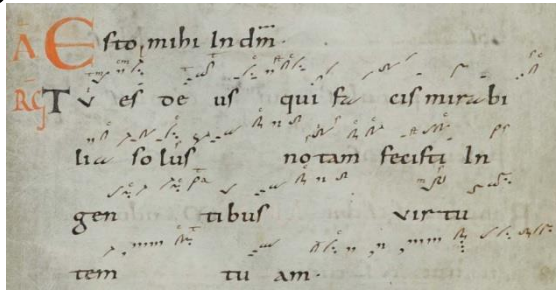 A Esto mihi In dm̄.
RG Tu es de us qui fa cis mirabi
lia solus notam fecisti In
gen tibus virtu
tem tu am.